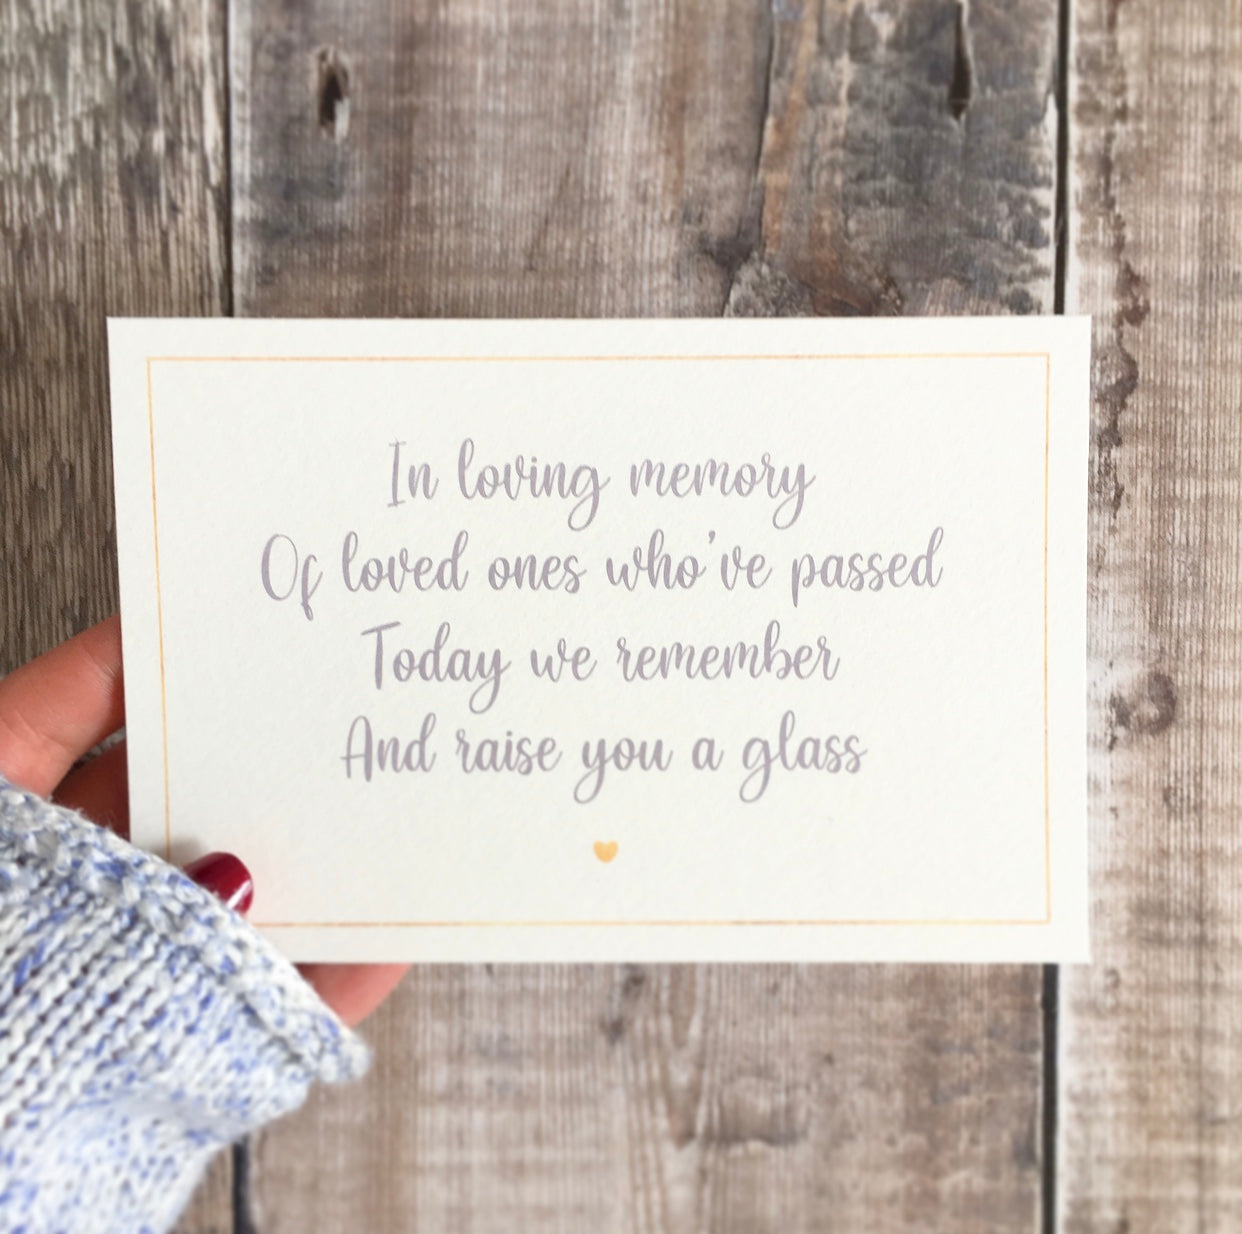 In loving memory
Of loved ones who've passed
Today we remember
And raise you a glass